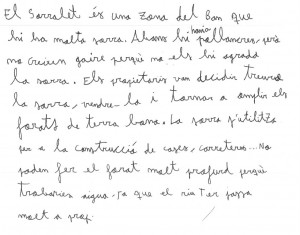 El Sorralet és una zona del Bom que
hi ha molta sorra. Abans hi havia pollancres, però
no creixen gaire perquè no els hi agrada
la sorra. Els propietaris van decidir treure
la sorra, vendre-la i tornar a omplir els
forats de terra bona. La sorra s'utilitza
per a la construcció de cases, carreteres... No
poden fer el forat molt profund perquè
trobarien aigua, ja que el riu Ter passa
molt a prop.